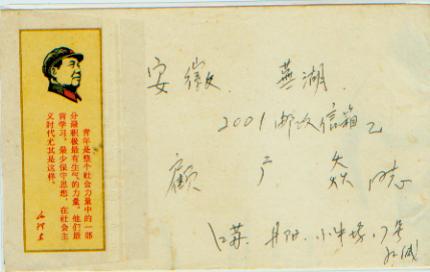 青年是整个社会力量中的一部
分最积极最有生气的力量。他们最
肯学习，最少保守思想，在社会主
义时代尤其是这样。
毛泽东
安徽 芜湖
2001邮政信箱乙
顾广焱同志
江苏丹阳小牛场17号